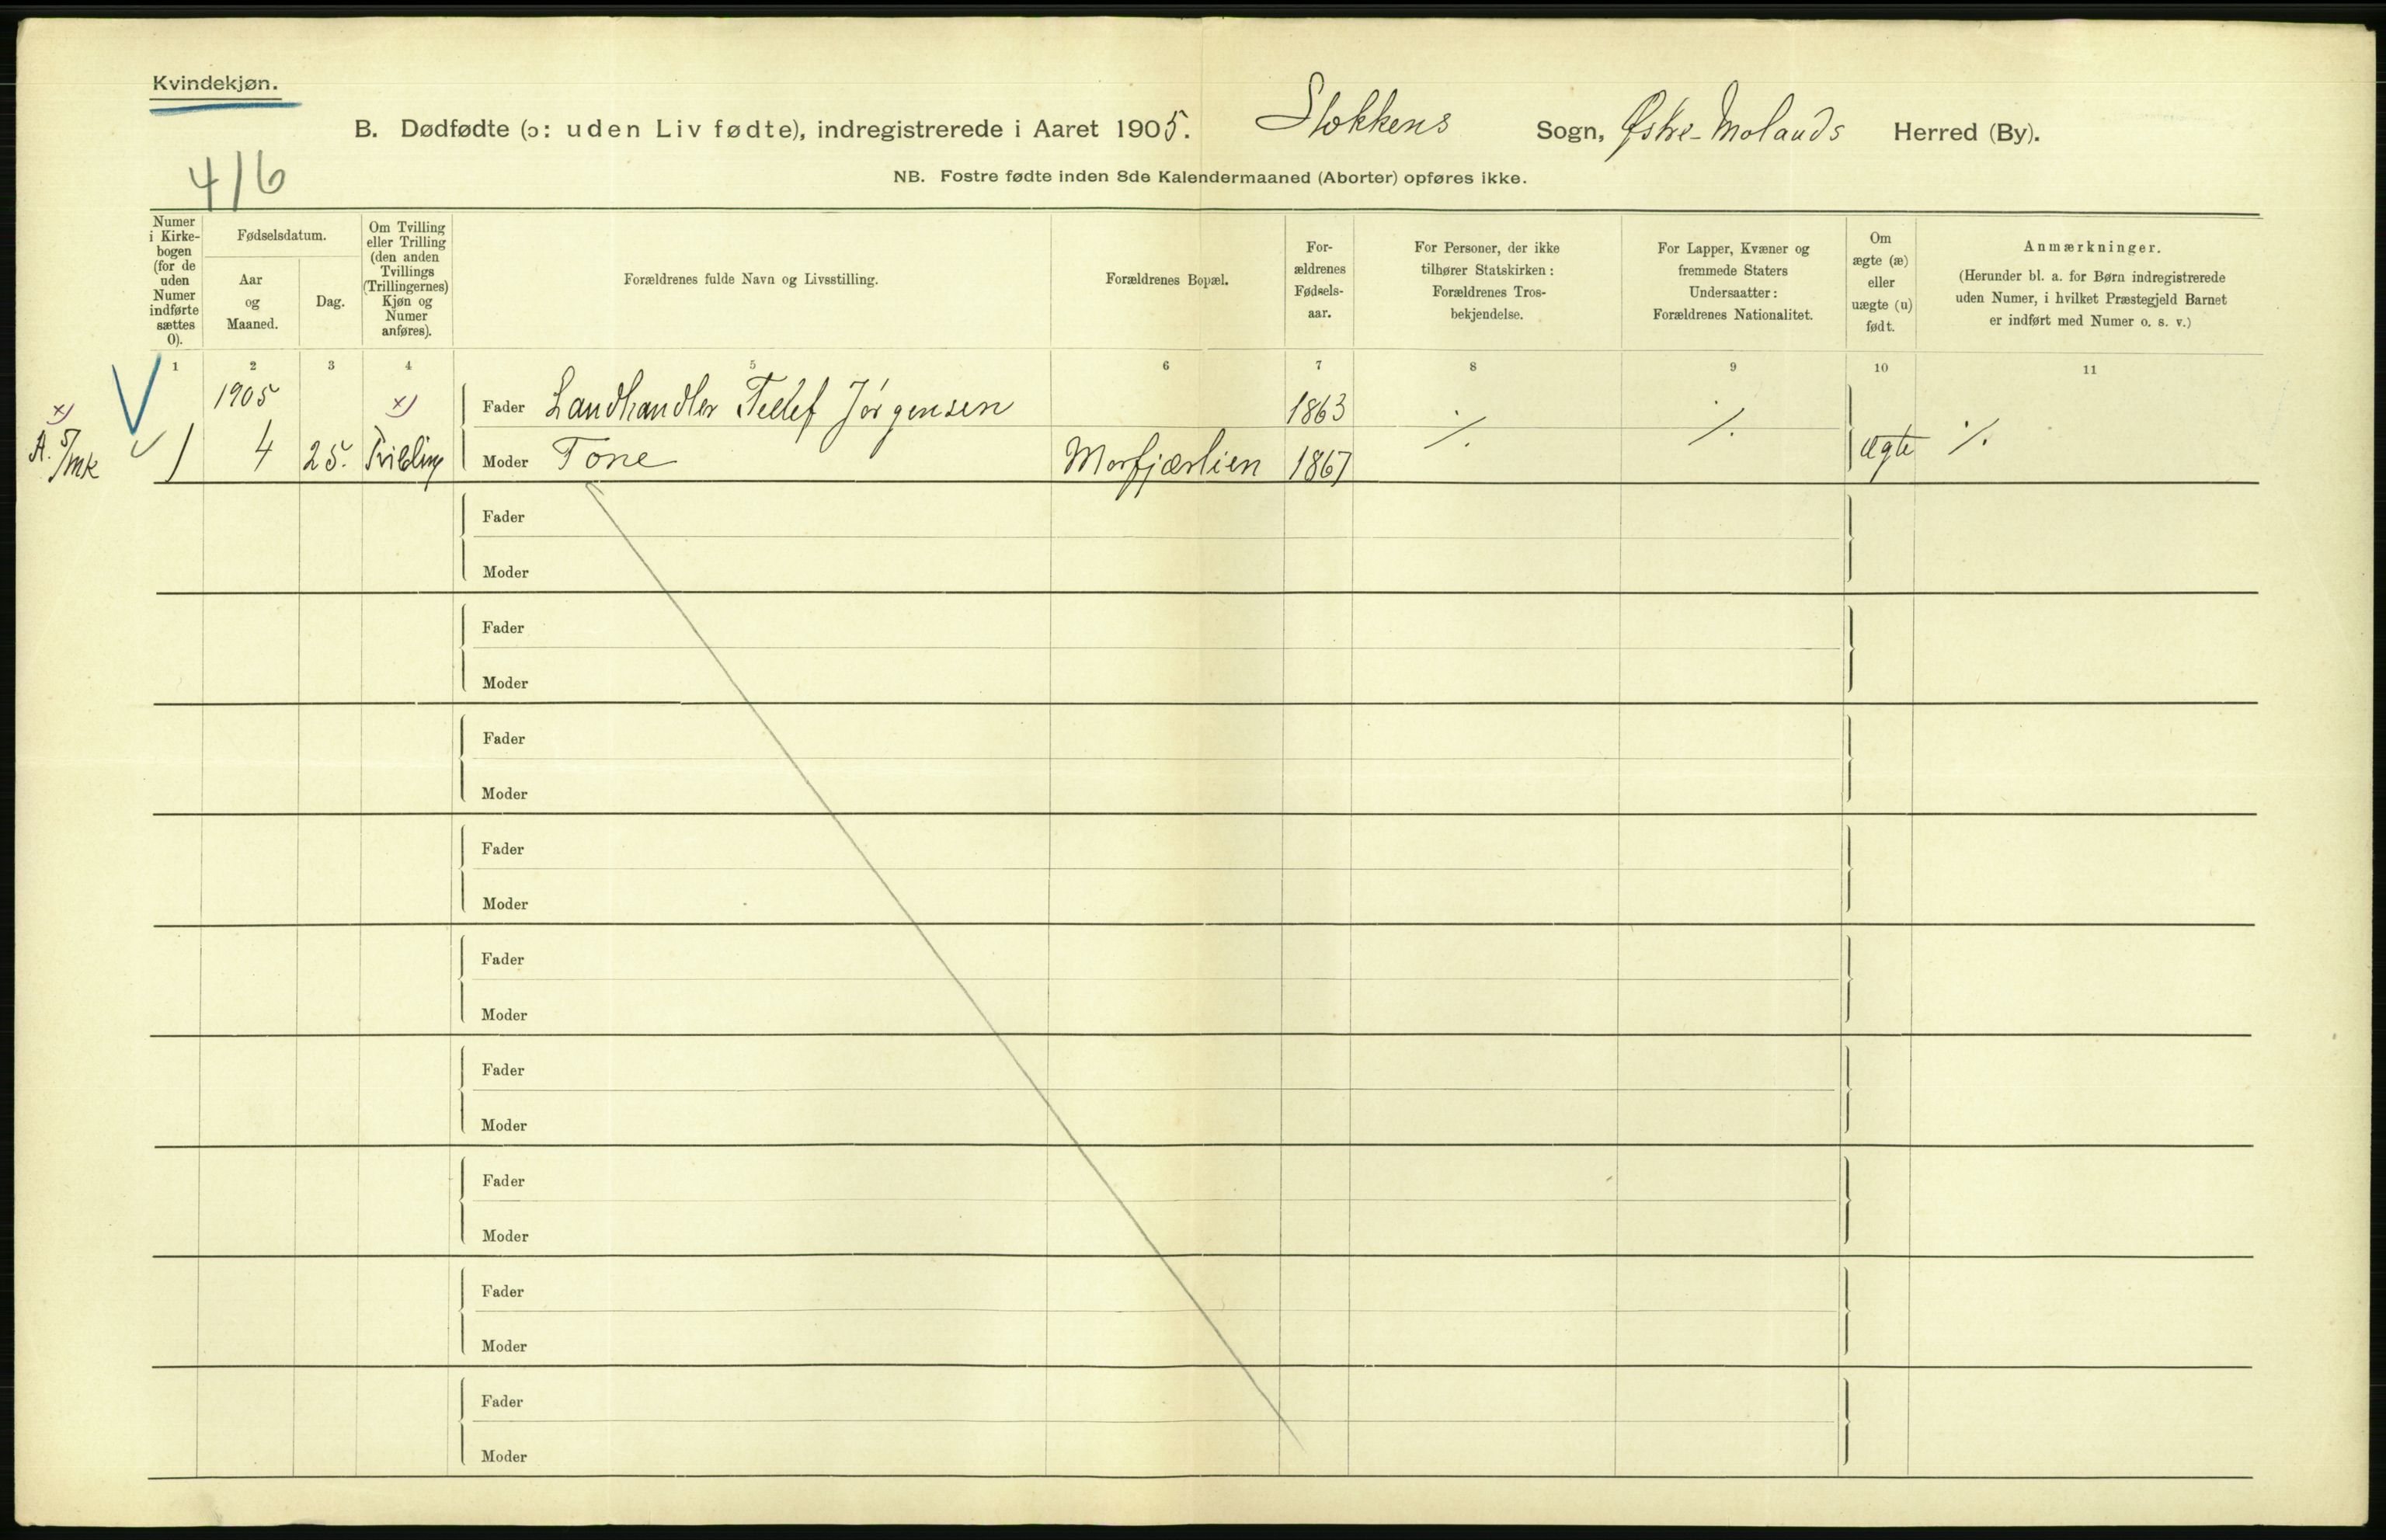 Kvindekjøn.
B. Dødfødte (ɔ: uden Liv fødte), indregistrerede i Aaret 1905. Stokkens Sogn, Østre-Molands Herred (By).
416
NB. Fostre fødte inden 8de Kalendermaaned (Aborter) opføres ikke.
Numer i Kirke-bogen (for de uden Numer indførte sættes 0).
Fødselsdatum.
Aar og Maaned.
Dag.
Om Tvilling eller Trilling (den anden Tvillings (Trillingernes) Kjøn og Numer anføres).
Forældrenes fulde Navn og Livsstilling.
Forældrenes Bopæl.
For-ældrenes Fødsels-aar.
For Personer, der ikke tilhører Statskirken: Forældrenes Tros-bekjendelse.
For Lapper, Kvæner og fremmede Staters Undersaatter: Forældrenes Nationalitet.
Om ægte (æ) eller uægte (u) født.
Anmærkninger.
(Herunder bl. a. for Børn indregistrerede uden Numer, i hvilket Præstegjeld Barnet er indført med Numer o. s. v.)
1 2 3 4 5 6 7 8 9 10 11
1905 x) Fader Landhandler Tellef Jörgensen 1863 ./. ./.
x) A. 5/mk 1 4 25. Tvilling Moder Tone Morfjærlien 1867 ægte ./.
Fader
Moder
Fader
Moder
Fader
Moder
Fader
Moder
Fader
Moder
Fader
Moder
Fader
Moder
Fader
Moder
Fader
Moder